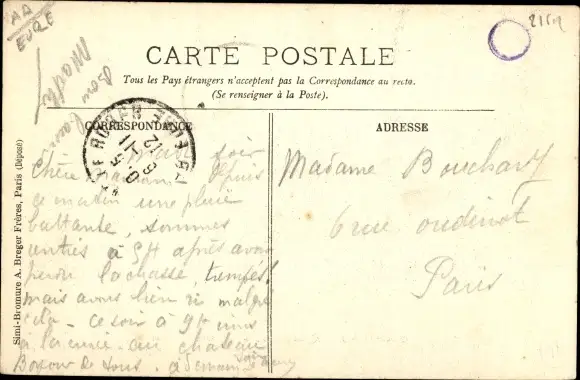 AA
EURE
2159
CARTE POSTALE
Tous les Pays étrangers n'acceptent pas la Correspondance au recto.
(Se renseigner à la Poste).
CORRESPONDANCE
ADRESSE
Simi-Bromure A. Breger Frères, Paris (Déposé)
soir
Chère maman. Depuis
ce matin une pluie
battante, sommes
rentrés à 5H après avoir
la chasse, trempés!
mais avons bien ri malgré
cela - ce soir à 9H
au château
de tous. à demain
Madame Bouchard
6 rue oudinot
Paris